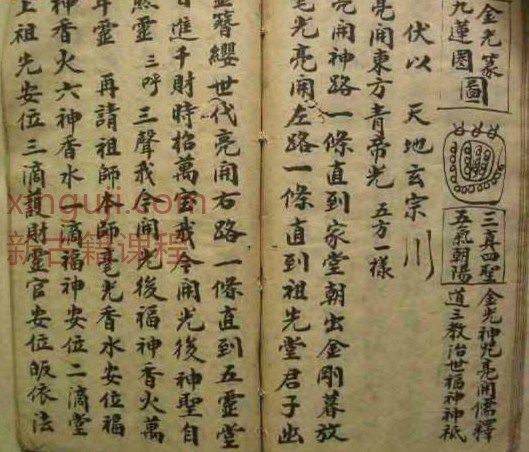 金光篆
九蓮圖
圖
三真四聖
五氣朝陽
金光神咒亮開儒釋
道三教治世福神神祇
伏以 天地玄宗
亮開東方青帝光 五方一樣
亮開神路一條直到家堂朝出金剛暮放
毫光亮開左路一條直到祖光堂君子出
簪纓世代亮開右路一條直到五靈堂
日進千財時招萬宝戒令開光後神聖自
然靈 三呼 三聲我令開光後福神香火萬
年靈 再請祖師本師毫光香水安位福
神香火六神香水一滴福神安位二滴堂
上祖先安位三滴護財靈官安位皈依法
xinguji.com
新古籍课程